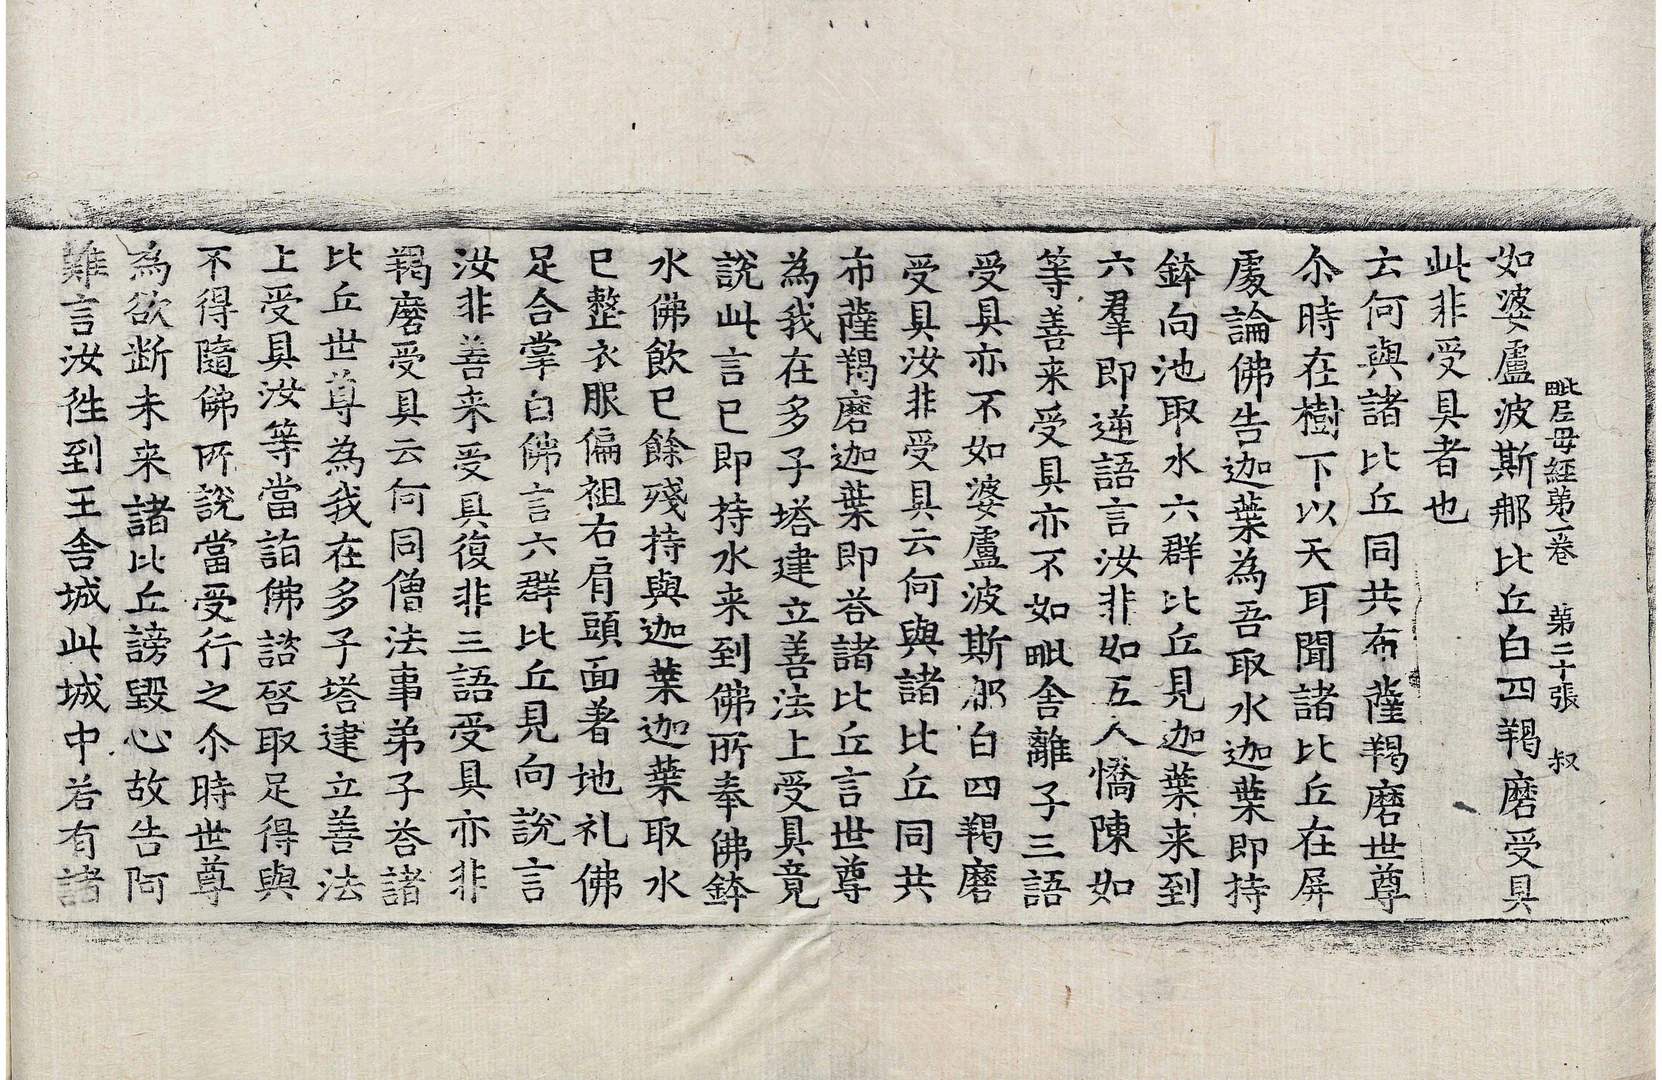 毗尼母經第一卷 第二十張 叔
如婆盧波斯那比丘白四羯磨受具
此非受具者也
云何與諸比丘同共布薩羯磨世尊
尒時在樹下以天耳聞諸比丘在屏
處論佛告迦葉為吾取水迦葉即持
鉢向池取水六群比丘見迦葉来到
六羣即逆語言汝非如五人憍陳如
等善来受具亦不如毗舍離子三語
受具亦不如婆盧波斯那白四羯磨
受具汝非受具云何與諸比丘同共
布薩羯磨迦葉即荅諸比丘言世尊
為我在多子塔建立善法上受具竟
說此言已即持水来到佛所奉佛鉢
水佛飲已餘殘持與迦葉迦葉取水
已整衣服偏袒右肩頭面著地礼佛
足合掌白佛言六群比丘見向說言
汝非善来受具復非三語受具亦非
羯磨受具云何同僧法事弟子荅諸
比丘世尊為我在多子塔建立善法
上受具汝等當詣佛諮啓取足得與
不得隨佛所說當受行之尒時世尊
為欲断未来諸比丘謗毀心故告阿
難言汝徃到王舍城此城中若有諸